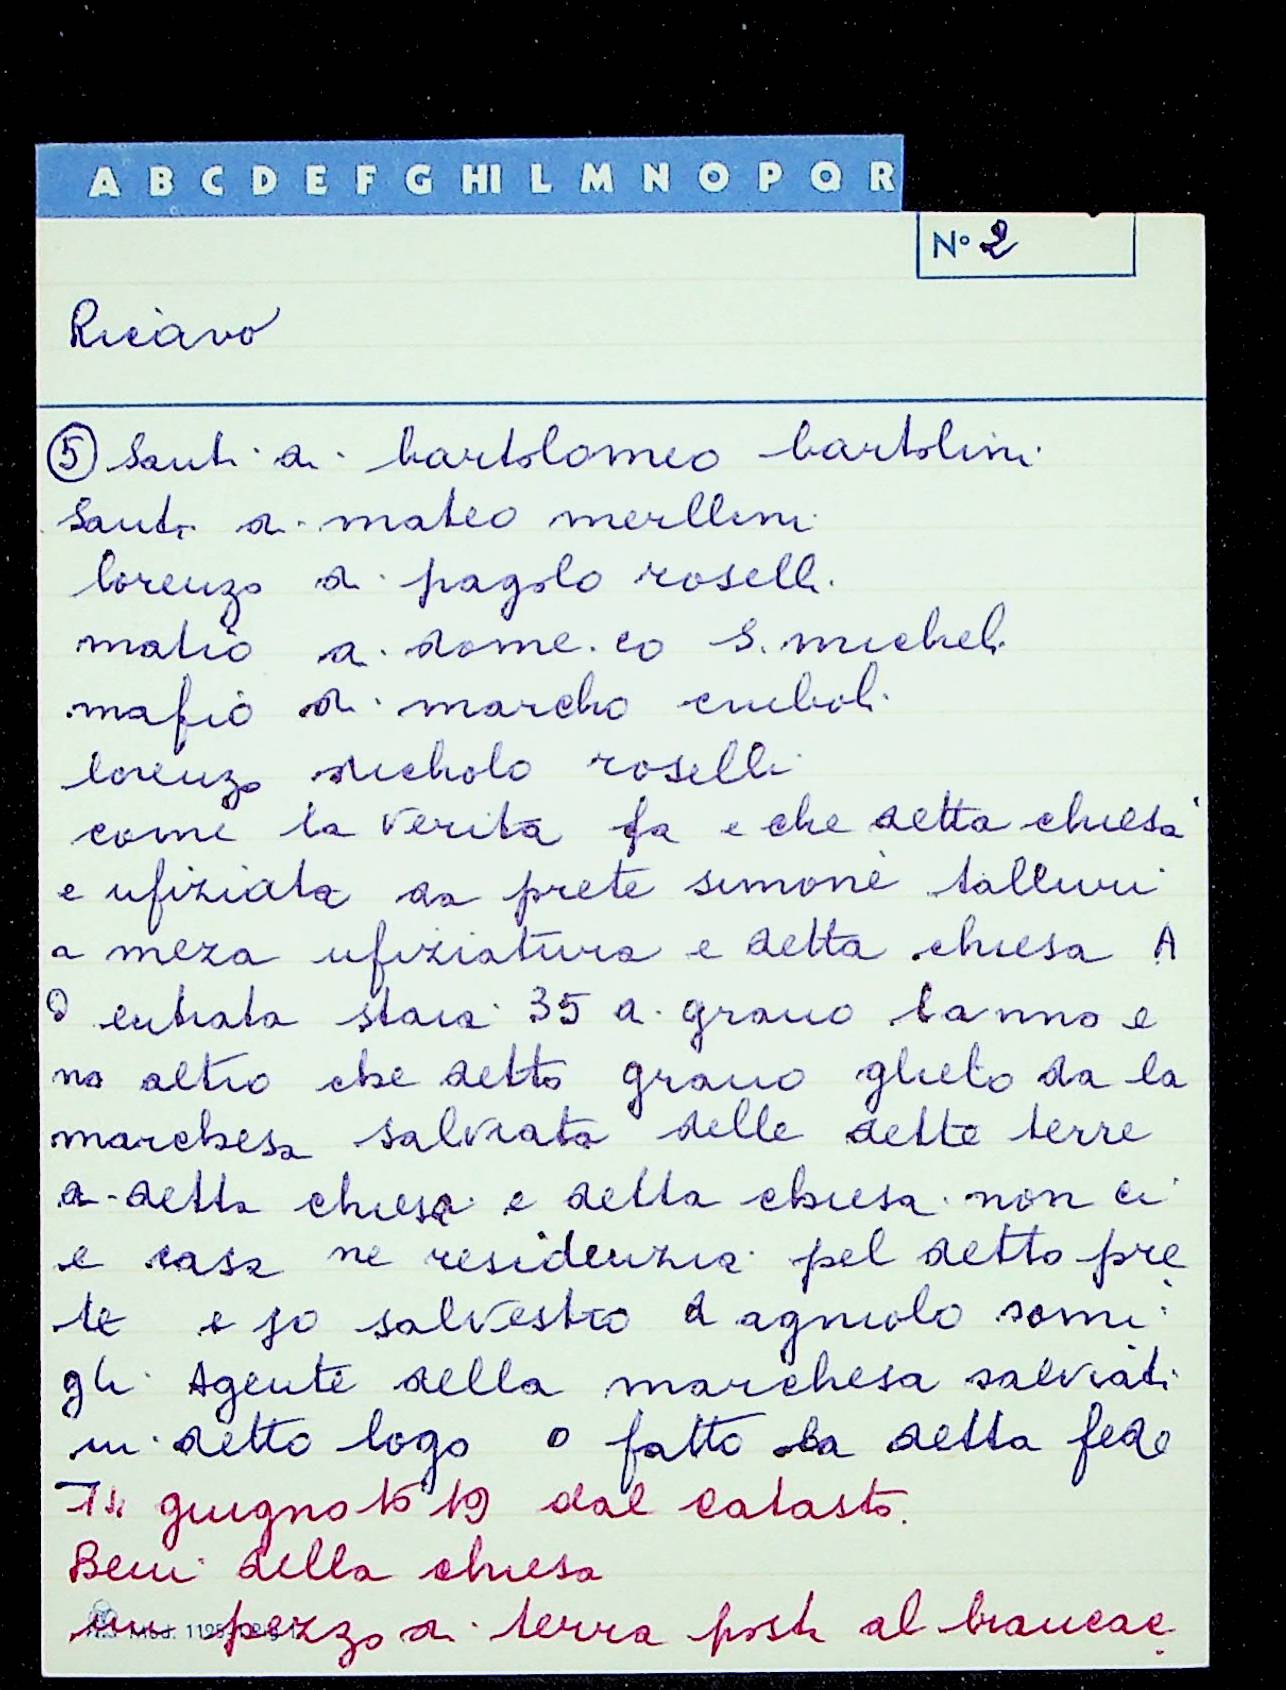 A B C D E F G HI L M N O P Q R
N° 2
Ricavo
⑤ Santi di bartolomeo bartolini
Santi di mateo merllini
lorenzo di pagolo roselli
matio di dome.co S. micheli
mafio di marcho
lorenzo nicholo roselli
come la verita fa e che detta chiesa
e ufiziata da prete simone talluri
a meza ufiziatura e detta chiesa A
D entrata staia 35 di grano lanno e
no altro che detto grano glielo da la
marchesa salviata delle dette terre
di detta chiesa e detta chiesa non ci
e casa ne residenzia pel detto pre
te e jo salvestro d agniolo somi
gli Agente della marchesa salviati
in detto logo o fatto la detta fede
giugno 1619 dal catasto.
Beni della chiesa
un pezzo di terra posti al brancac
Mod. 1195